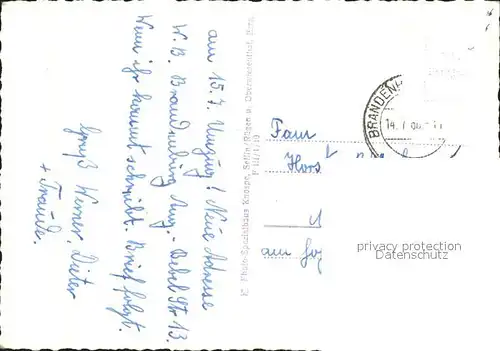 am 15.7. Umzug! Neue Adresse
W. B. Brandenburg Aug.-Bebel Str 13.
Wenn ihr kommt schreibt. Brief folgt.
Gruß Werner, Dieter
+ Traude.
Photo-Spezialhaus Knospe, Sellin/Rügen u. Oberwiesenthal, Erzg.
P III/1/19
BRANDEN
14.7.
Fam
Hors
am
privacy protection
Datenschutz